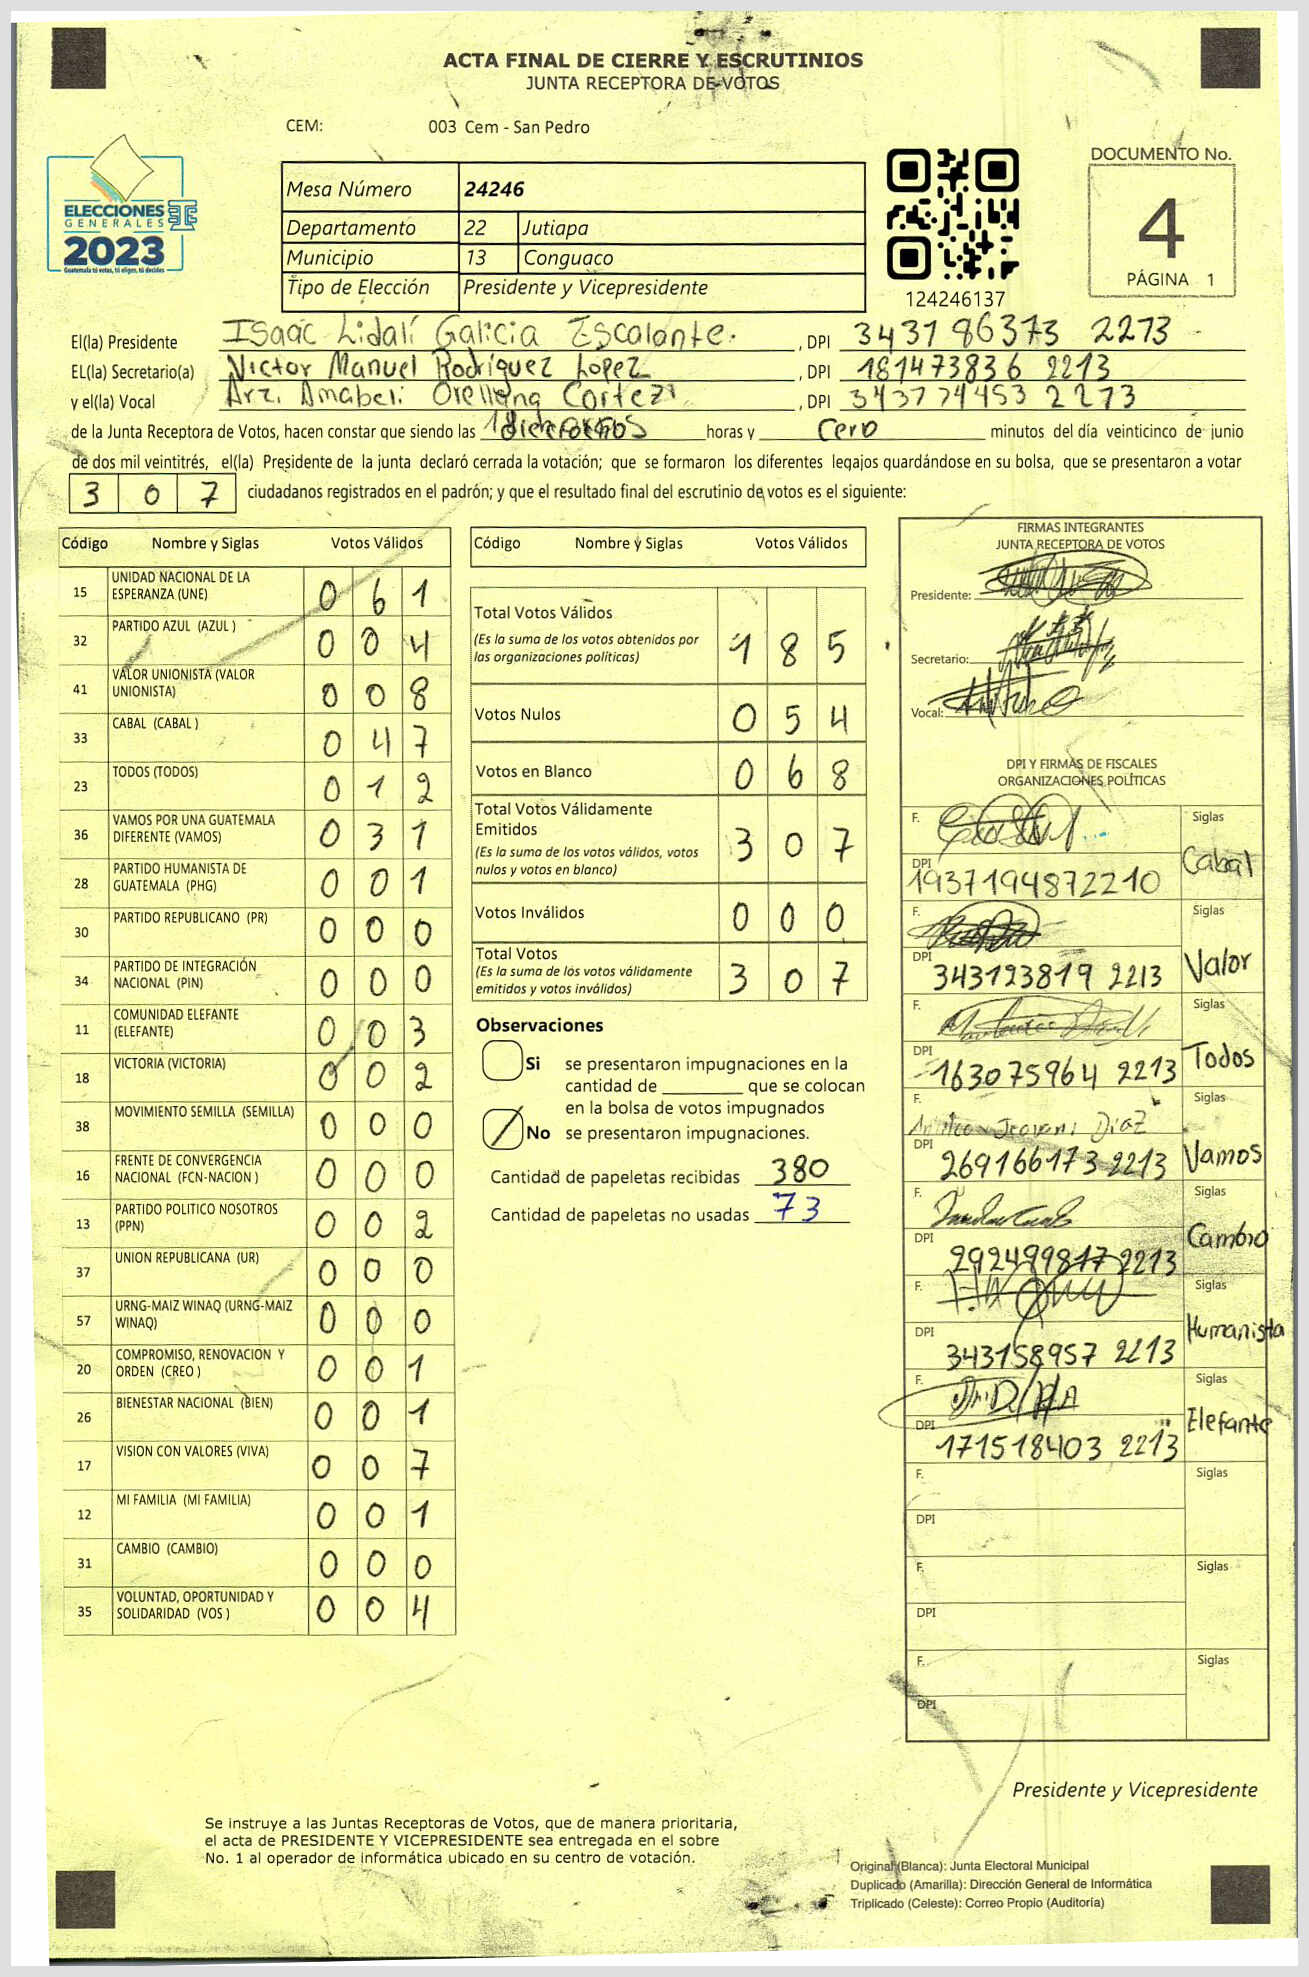 ACTA FINAL DE CIERRE Y ESCRUTINIOS
JUNTA RECEPTORA DE VOTOS
CEM: 003 Cem - San Pedro
ELECCIONES
GENERALES
2023
Guatemala tú votas, tú eliges, tú decides
Mesa Número 24246
Departamento 22 Jutiapa
Municipio 13 Conguaco
Tipo de Elección Presidente y Vicepresidente
124246137
DOCUMENTO No.
4
PÁGINA 1
El(la) Presidente Isaac Lidalí Galicia Escalante. , DPI 343186373 2213
EL(la) Secretario(a) Victor Manuel Rodríguez Lopez , DPI 181473836 2213
y el(la) Vocal Orellana Cortez , DPI 343774453 2273
de la Junta Receptora de Votos, hacen constar que siendo las horas y cero minutos del día veinticinco de junio
de dos mil veintitrés, el(la) Presidente de la junta declaró cerrada la votación; que se formaron los diferentes legajos guardándose en su bolsa, que se presentaron a votar
3 0 7 ciudadanos registrados en el padrón; y que el resultado final del escrutinio de votos es el siguiente:
Código Nombre y Siglas Votos Válidos
15 UNIDAD NACIONAL DE LA ESPERANZA (UNE) 0 6 1
32 PARTIDO AZUL (AZUL ) 0 0 4
41 VALOR UNIONISTA (VALOR UNIONISTA) 0 0 8
33 CABAL (CABAL ) 0 4 7
23 TODOS (TODOS) 0 1 2
36 VAMOS POR UNA GUATEMALA DIFERENTE (VAMOS) 0 3 1
28 PARTIDO HUMANISTA DE GUATEMALA (PHG) 0 0 1
30 PARTIDO REPUBLICANO (PR) 0 0 0
34 PARTIDO DE INTEGRACIÓN NACIONAL (PIN) 0 0 0
11 COMUNIDAD ELEFANTE (ELEFANTE) 0 0 3
18 VICTORIA (VICTORIA) 0 0 2
38 MOVIMIENTO SEMILLA (SEMILLA) 0 0 0
16 FRENTE DE CONVERGENCIA NACIONAL (FCN-NACION ) 0 0 0
13 PARTIDO POLITICO NOSOTROS (PPN) 0 0 2
37 UNION REPUBLICANA (UR) 0 0 0
57 URNG-MAIZ WINAQ (URNG-MAIZ WINAQ) 0 0 0
20 COMPROMISO, RENOVACION Y ORDEN (CREO ) 0 0 1
26 BIENESTAR NACIONAL (BIEN) 0 0 1
17 VISION CON VALORES (VIVA) 0 0 7
12 MI FAMILIA (MI FAMILIA) 0 0 1
31 CAMBIO (CAMBIO) 0 0 0
35 VOLUNTAD, OPORTUNIDAD Y SOLIDARIDAD (VOS ) 0 0 4
Código Nombre y Siglas Votos Válidos
Total Votos Válidos 1 8 5
(Es la suma de los votos obtenidos por
las organizaciones políticas)
Votos Nulos 0 5 4
Votos en Blanco 0 6 8
Total Votos Válidamente
Emitidos 3 0 7
(Es la suma de los votos válidos, votos
nulos y votos en blanco)
Votos Inválidos 0 0 0
Total Votos 3 0 7
(Es la suma de los votos válidamente
emitidos y votos inválidos)
Observaciones
Si se presentaron impugnaciones en la
cantidad de ________ que se colocan
en la bolsa de votos impugnados
No se presentaron impugnaciones.
Cantidad de papeletas recibidas 380
Cantidad de papeletas no usadas 73
FIRMAS INTEGRANTES
JUNTA RECEPTORA DE VOTOS
Presidente:
Secretario:
Vocal:
DPI Y FIRMAS DE FISCALES
ORGANIZACIONES POLÍTICAS
F. Siglas
DPI 1937194872210 Cabal
F. Siglas
DPI 343123819 2213 Valor
F. Siglas
DPI 163075964 2213 Todos
F. Diaz Siglas
DPI 269166173 2213 Vamos
F. Siglas
DPI 292499817 2213 Cambio
F. Siglas
DPI 343158957 2213 Humanista
F. Siglas
DPI 171518403 2213 Elefante
F. Siglas
DPI
F. Siglas
DPI
F. Siglas
DPI
Presidente y Vicepresidente
Se instruye a las Juntas Receptoras de Votos, que de manera prioritaria,
el acta de PRESIDENTE Y VICEPRESIDENTE sea entregada en el sobre
No. 1 al operador de informática ubicado en su centro de votación.
Original (Blanca): Junta Electoral Municipal
Duplicado (Amarilla): Dirección General de Informática
Triplicado (Celeste): Correo Propio (Auditoría)